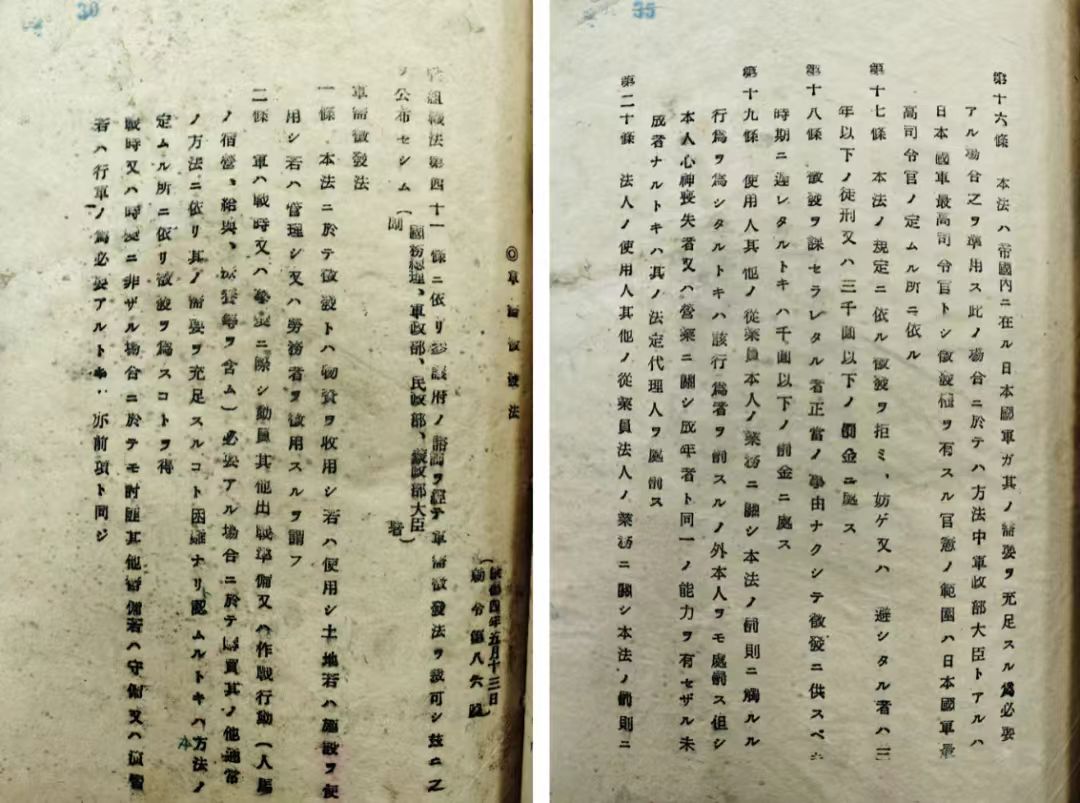 30
◎軍需徵發法
康德四年五月十三日
勅令第八六號
組織法第四十一條ニ依リ參議府ノ諮詢ヲ經テ軍需徵發法ヲ裁可シ茲ニ之
ヲ公布セシム
國務總理、軍政部、民政部、大臣
署
軍需徵發法
一條 本法ニ於テ徵發トハ物資ヲ收用シ若ハ使用シ土地若ハ施設ヲ使
用シ若ハ管理シ又ハ勞務者ヲ徵用スルヲ謂フ
二條 軍ハ戰時又ハ事變ニ際シ動員其他出戰準備又ハ作戰行動(人馬
ノ宿營、給與、等ヲ含ム)必要アル場合ニ於テ購買其ノ他通常
ノ方法ニ依リ其ノ需要ヲ充足スルコト困難ナリ認ムルトキハ方法ノ
定ムル所ニ依リ徵發ヲ爲スコトヲ得
戰時又ハ時變ニ非ザル場合ニ於テモ討匪其他警備若ハ守備又ハ演習
若ハ行軍ノ爲必要アルトキ亦前項ト同ジ
35
第十六條 本法ハ帝國內ニ在ル日本國軍ガ其ノ需要ヲ充足スル爲必要
アル場合之ヲ準用ス此ノ場合ニ於テハ方法中軍政部大臣トアルハ
日本國軍最高司令官トシ徵發權ヲ有スル官憲ノ範圍ハ日本國軍最
高司令官ノ定ムル所ニ依ル
第十七條 本法ノ規定ニ依ル徵發ヲ拒ミ、妨ゲ又ハ 避シタル者ハ三
年以下ノ徒刑又ハ三千圓以下ノ罰金ニ處ス
第十八條 徵發ヲ課セラレタル者正當ノ事由ナクシテ徵發ニ供スベキ
時期ニ遲レタルトキハ千圓以下ノ罰金ニ處ス
第十九條 使用人其他ノ從業員本人ノ業務ニ關シ本法ノ罰則ニ觸ルル
行爲ヲ爲シタルトキハ該行爲者ヲ罰スルノ外本人ヲモ處罰ス但シ
本人心神喪失者又ハ營業ニ關シ成年者ト同一ノ能力ヲ有セザル未
成者ナルトキハ其ノ法定代理人ヲ處罰ス
第二十條 法人ノ使用人其他ノ從業員法人ノ業務ニ關シ本法ノ罰則ニ